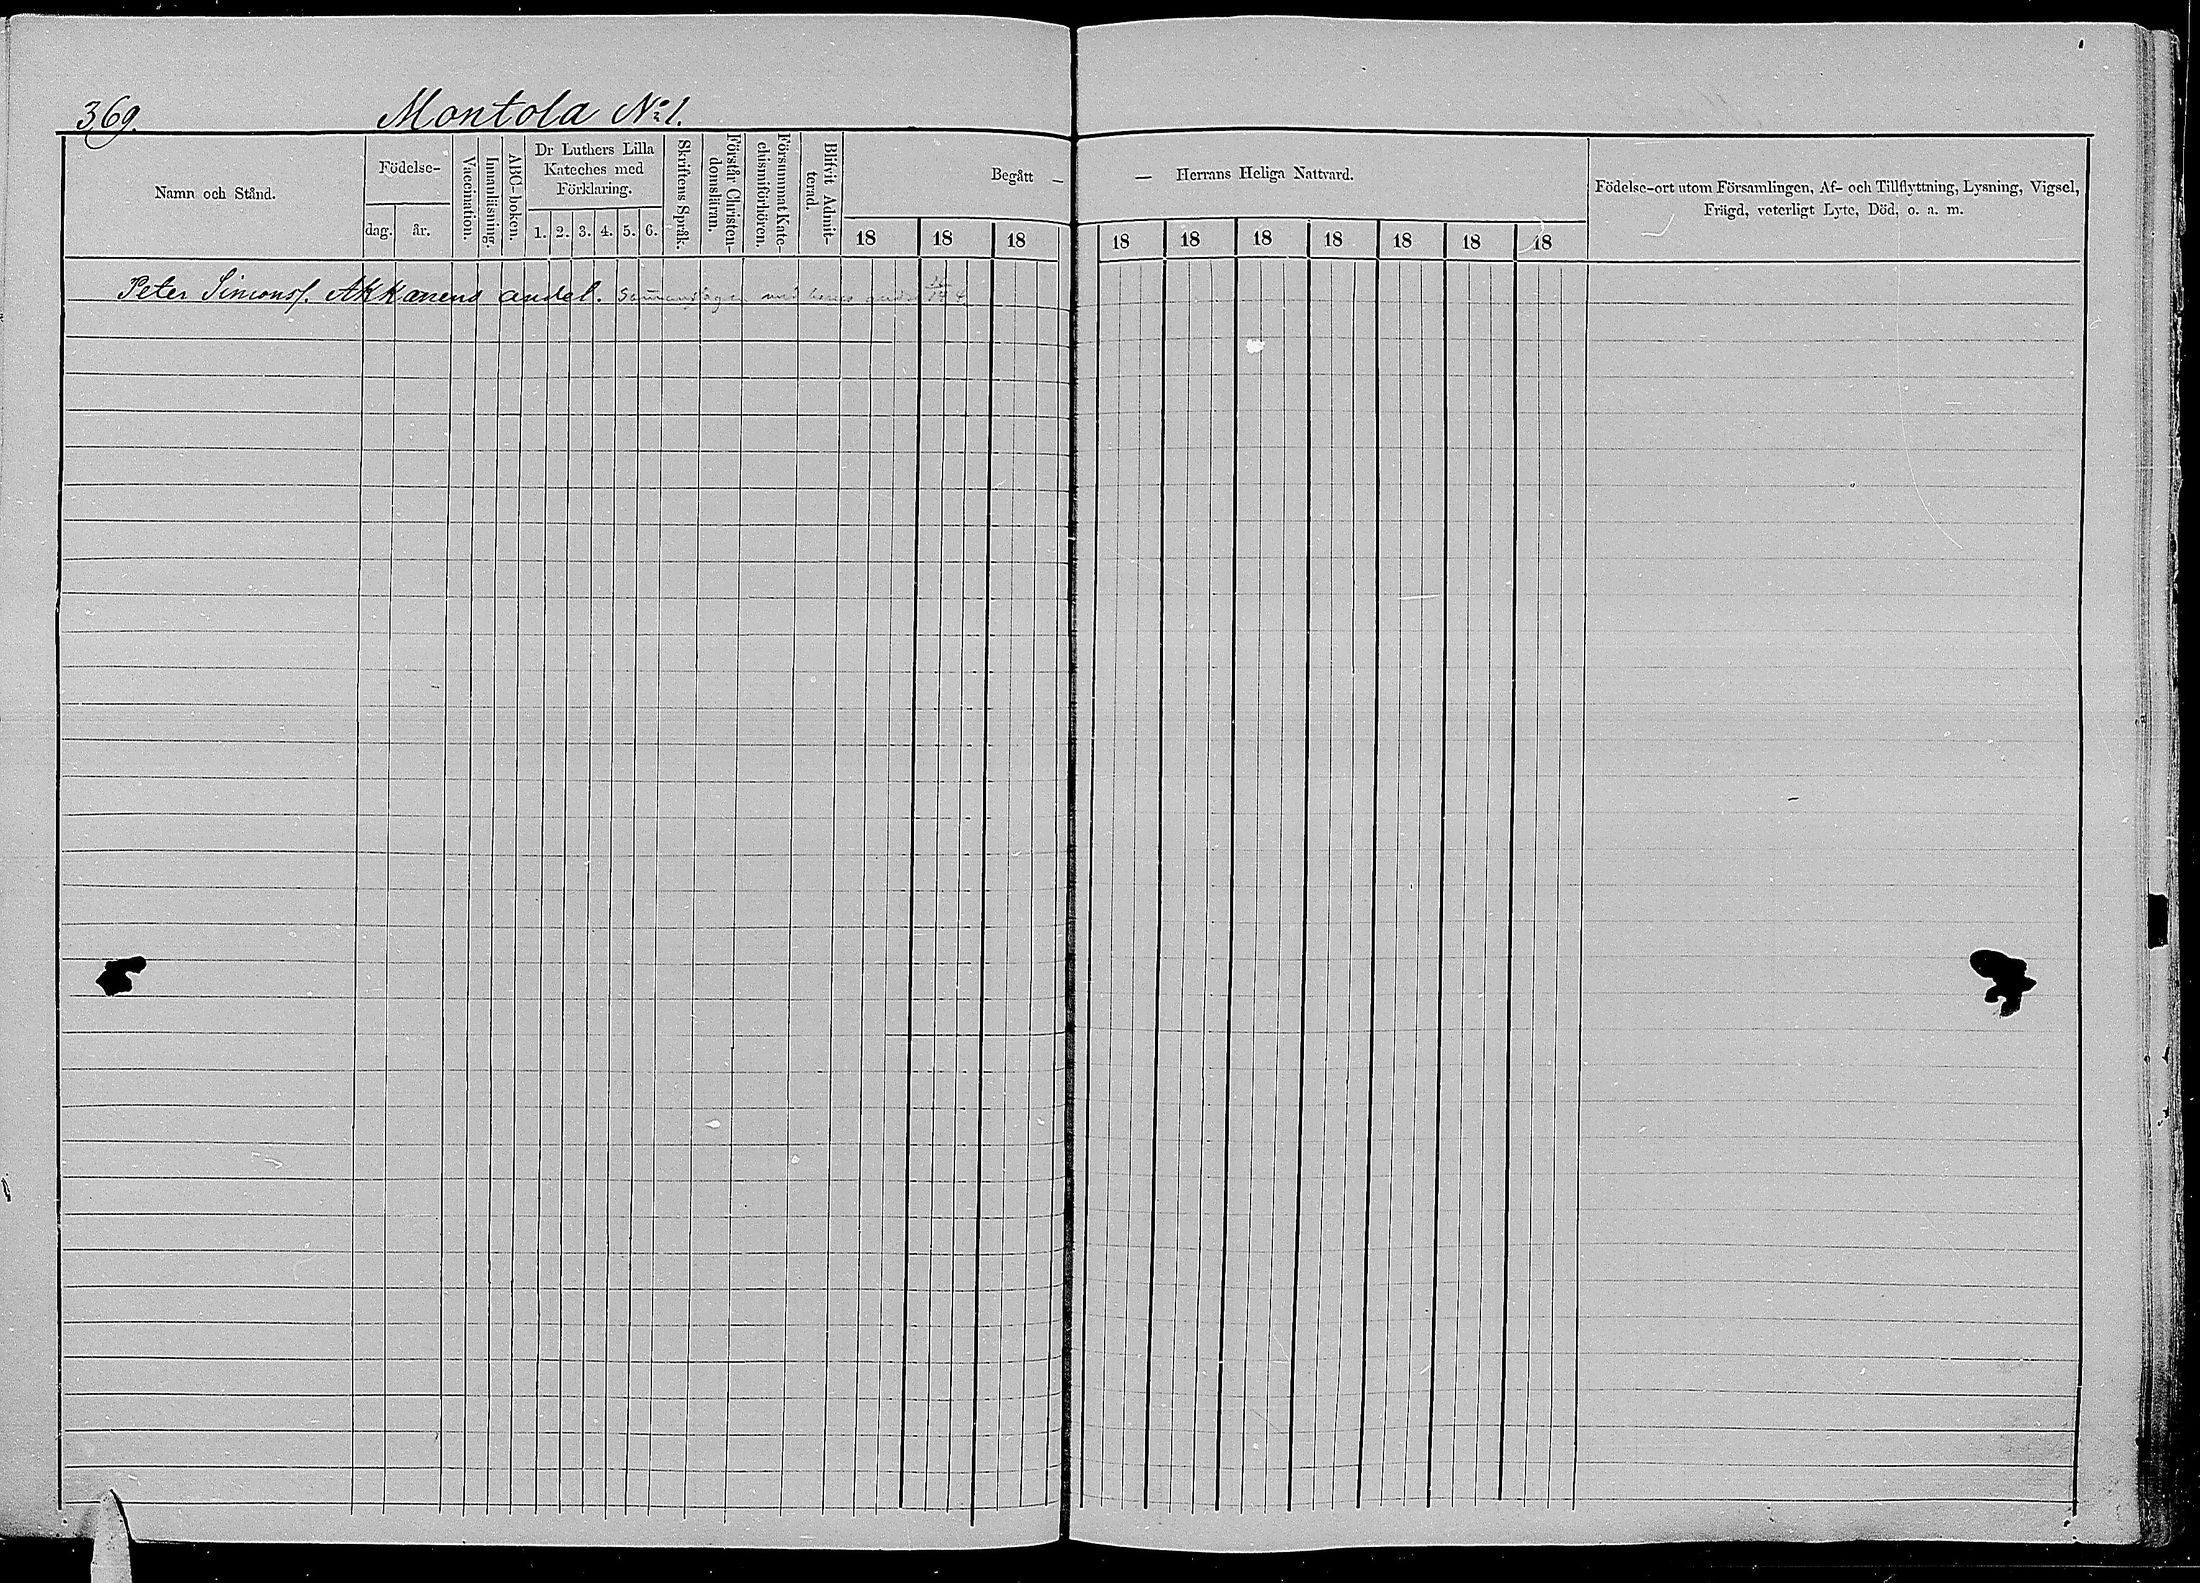 369.
Montola No 1.
Namn och Stånd.
Födelse-
dag. år.
Vaccination.
Innanläsning.
ABC-boken.
Dr Luthers Lilla
Kateches med
Förklaring.
1. 2. 3. 4. 5. 6.
Skriftens Språk.
Förstår Christen-
domsläran.
Försummat Kate-
chismiförhören.
Blifvit Admit-
terad.
Begått —
18 18 18
— Herrans Heliga Nattvard.
18 18 18 18 18 18 18
Födelse-ort utom Församlingen, Af- och Tillflyttning, Lysning, Vigsel,
Frägd, veterligt Lyte, Död, o. a. m.
Peter Simonss. Akkanens andel.